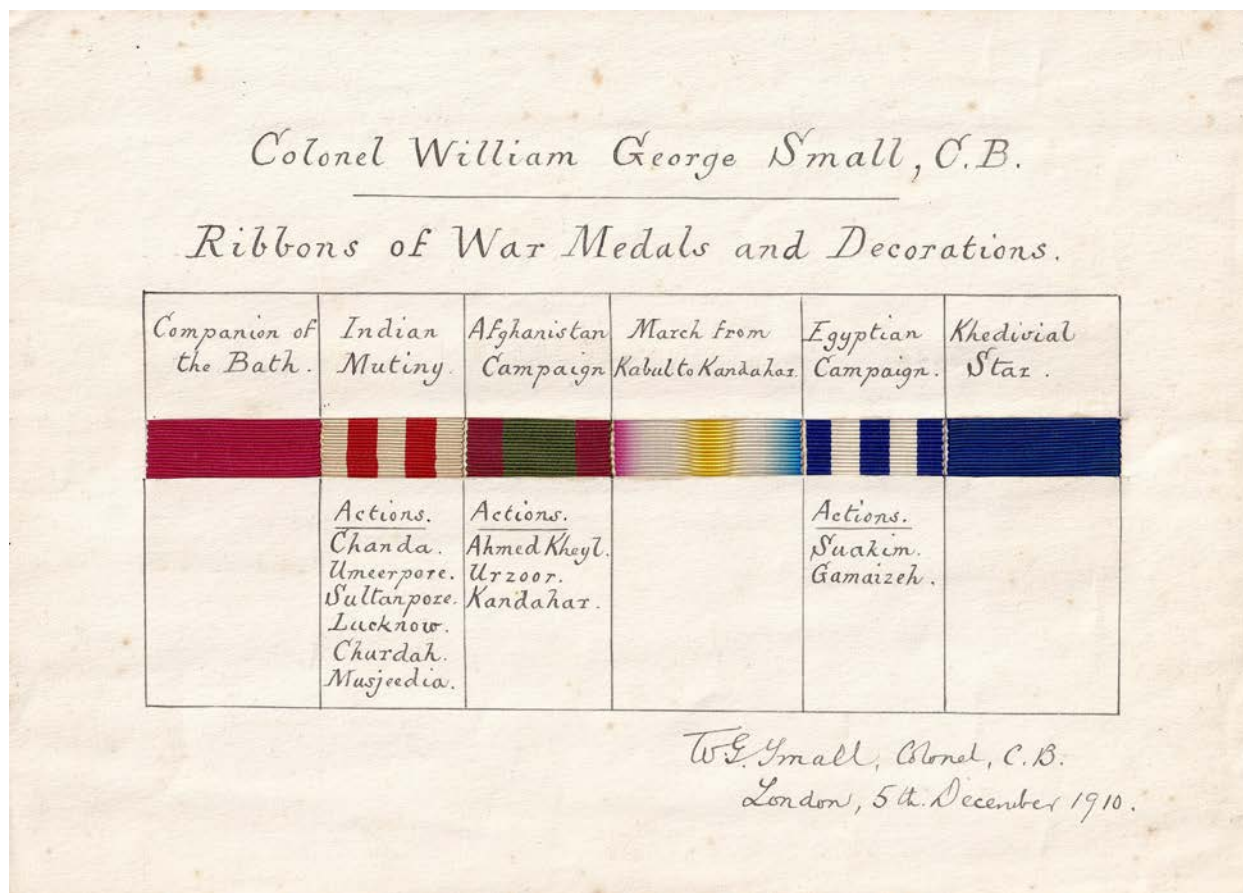 Colonel William George Small, C.B.
Ribbons of War Medals and Decorations.
Companion of
the Bath.
Indian
Mutiny.
Afghanistan
Campaign
March from
Kabul to Kandahar.
Egyptian
Campaign.
Khedivial
Star.
Actions.
Chanda.
Umeerpore.
Sultanpore.
Lucknow.
Churdah.
Musjeedia.
Actions.
Ahmed Kheyl.
Urzoor.
Kandahar.
Actions.
Suakim.
Gamaizeh.
W.G. Small, Colonel, C.B.
London, 5th. December 1910.